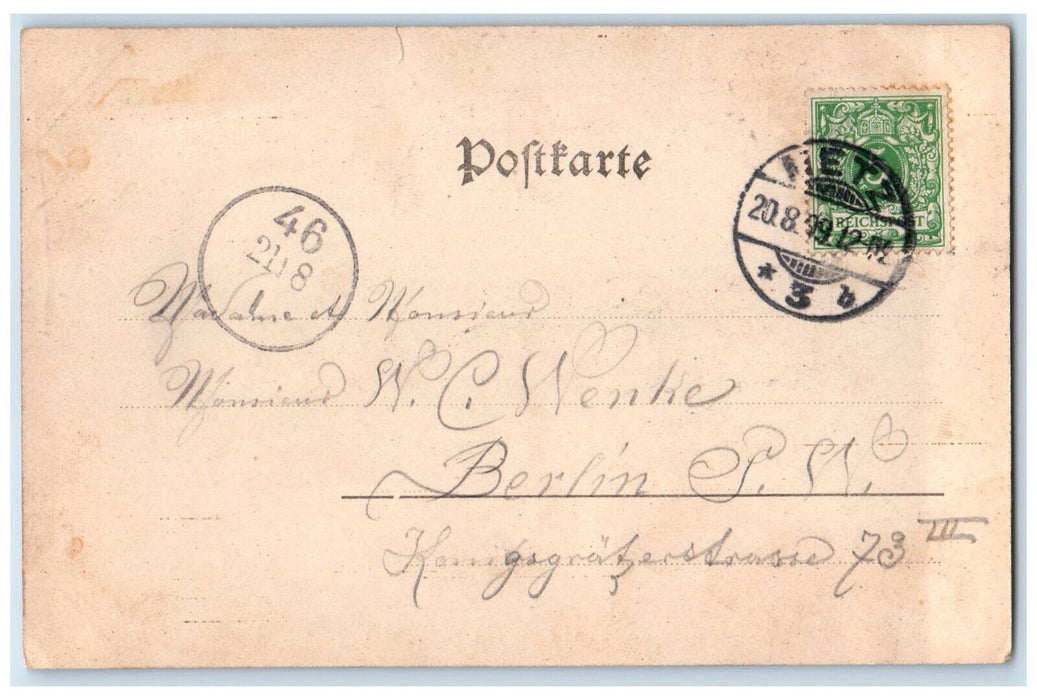 Postkarte
5
REICHSPOST
METZ
20.8.99.12-
* 3 b
46
21 8
Madame et Monsieur
Monsieur W. C. Wenke
Berlin S. W.
Konigsgrätzerstrasse 73 III